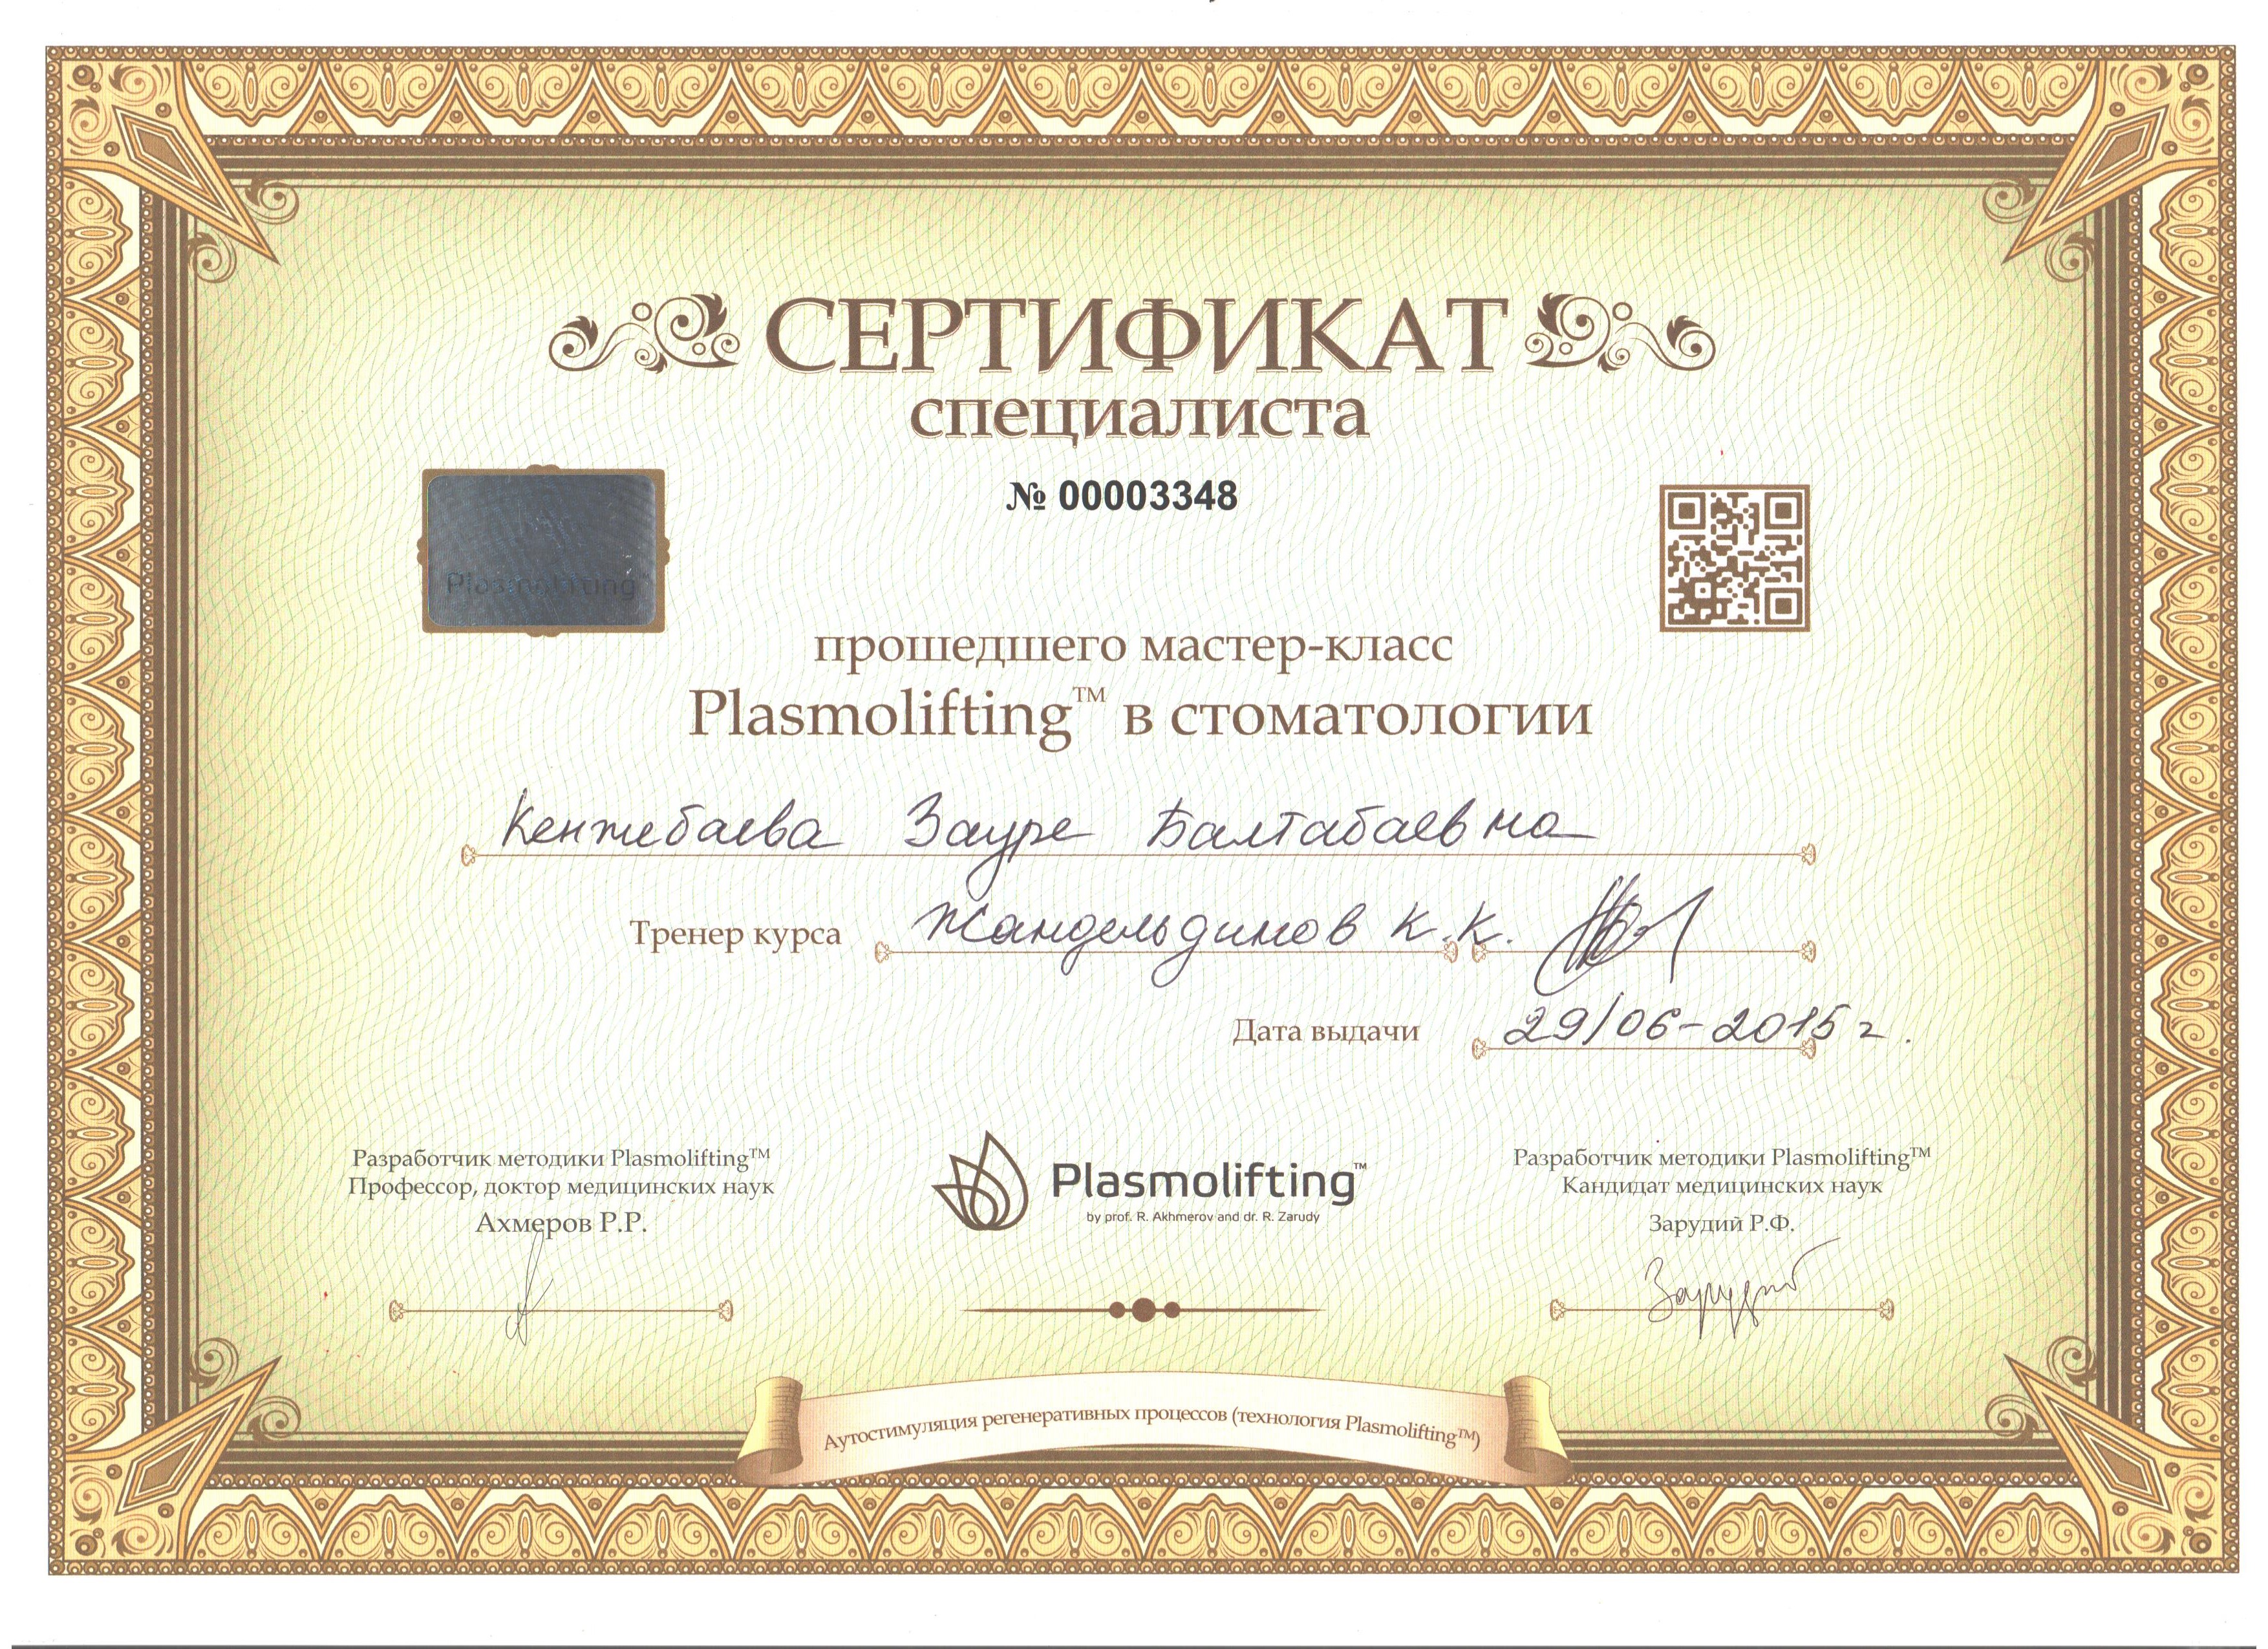 СЕРТИФИКАТ
специалиста
№ 00003348
Plasmolifting™
прошедшего мастер-класс
Plasmolifting™ в стоматологии
Кенжебаева Зауре Балтабаевна
Тренер курса Жандельдинов К.К.
Дата выдачи 29/06-2015 г.
Разработчик методики Plasmolifting™
Профессор, доктор медицинских наук
Ахмеров Р.Р.
Plasmolifting™
by prof. R. Akhmerov and dr. R. Zarudy
Разработчик методики Plasmolifting™
Кандидат медицинских наук
Зарудий Р.Ф.
Аутостимуляция регенеративных процессов (технология Plasmolifting™)